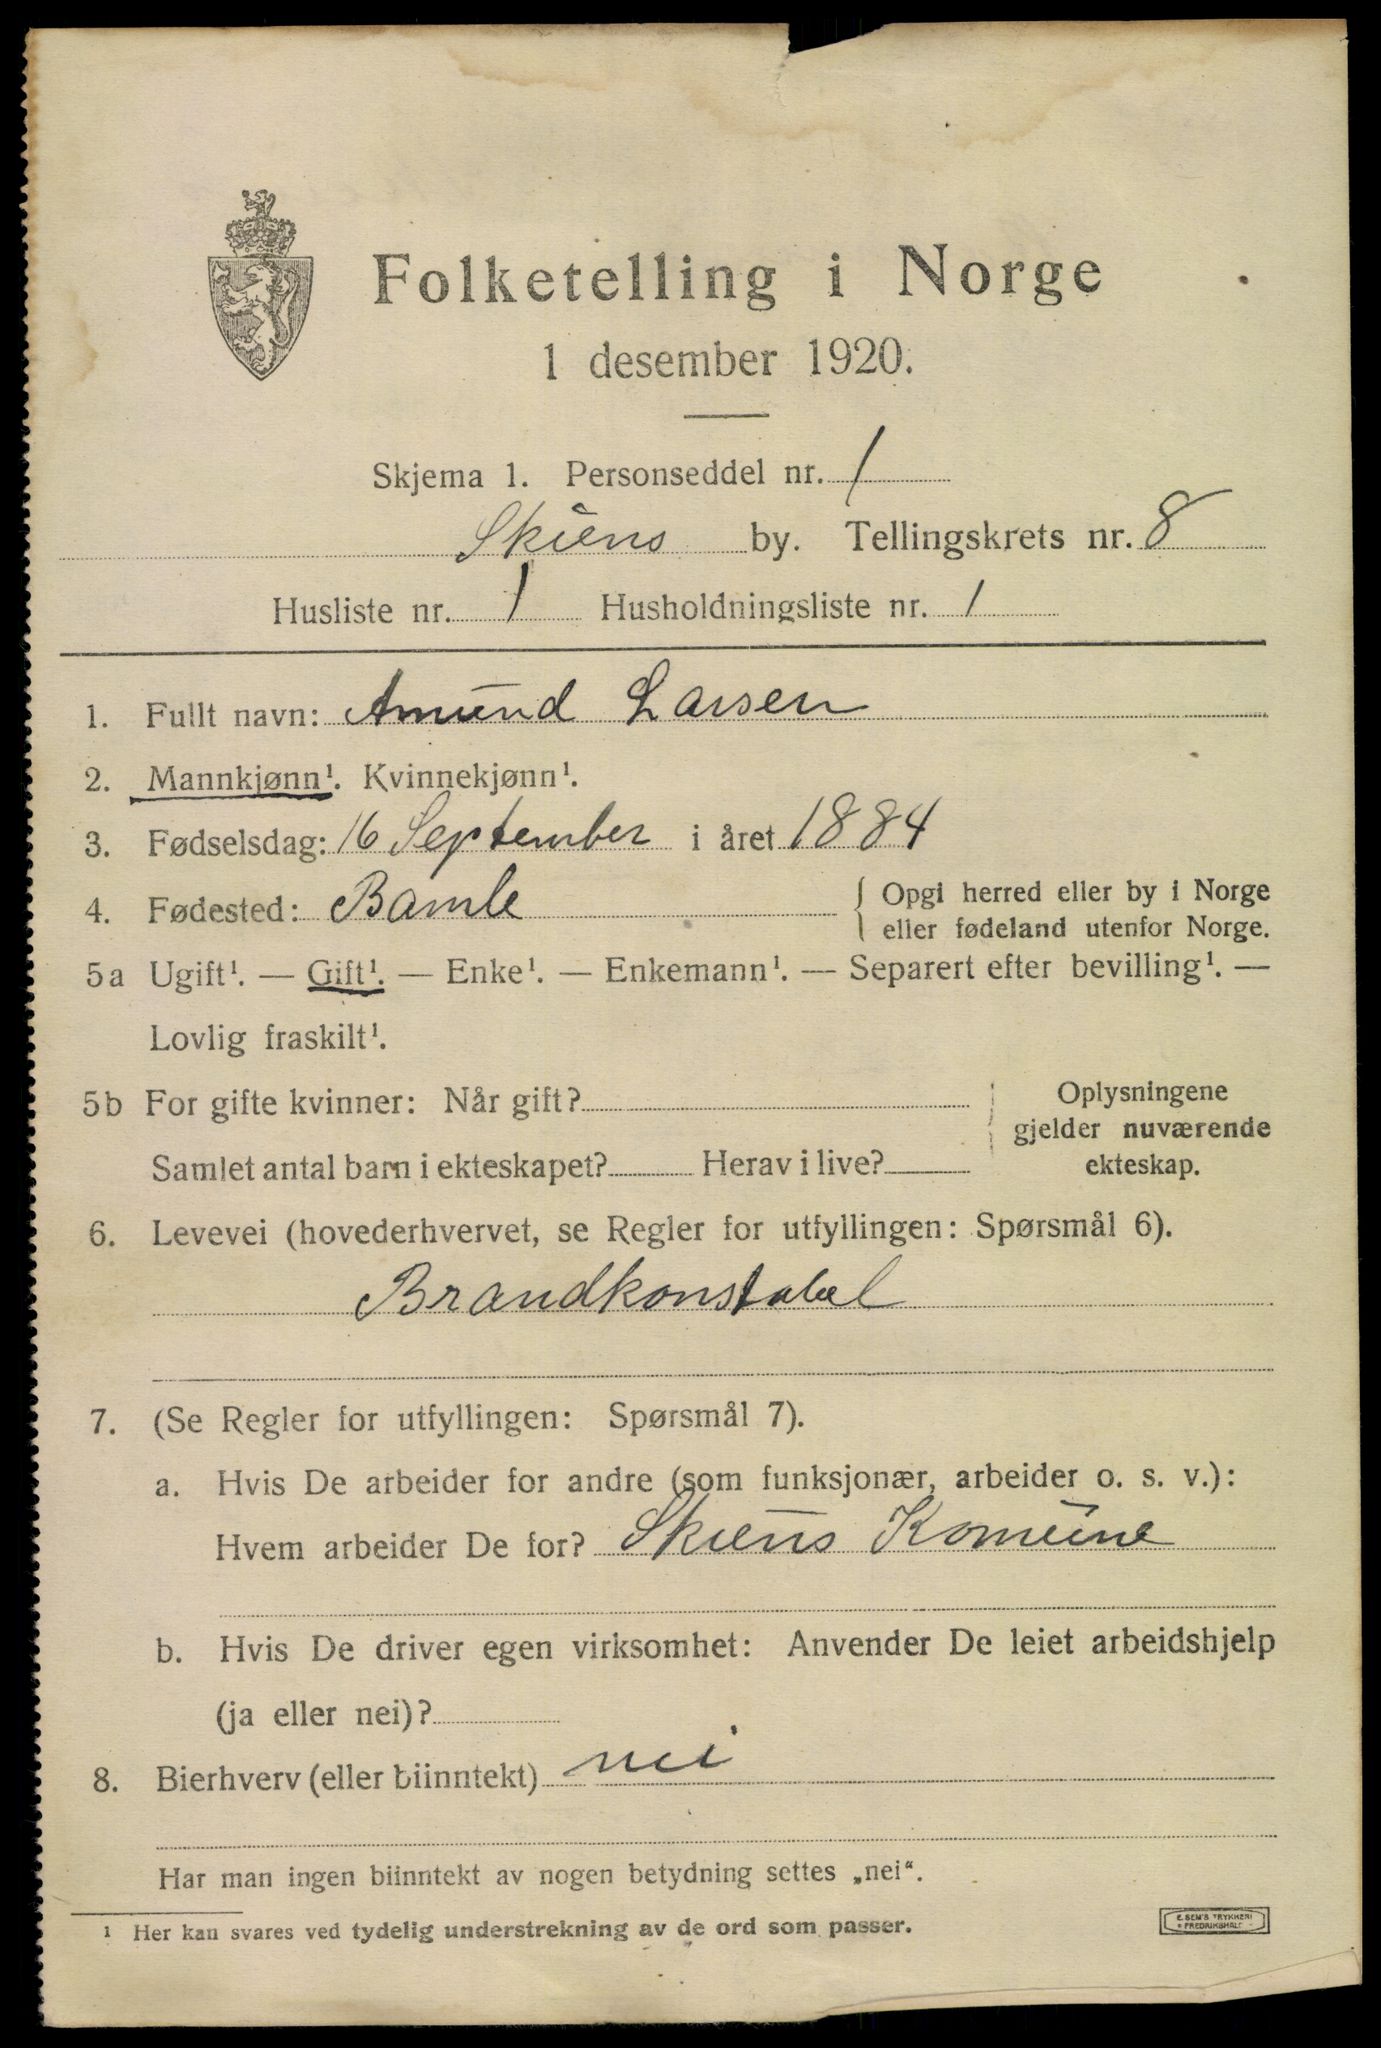 Folketelling i Norge
1 desember 1920.
Skjema 1. Personseddel nr. 1
Skiens by. Tellingskrets nr. 8
Husliste nr. 1 Husholdningsliste nr. 1
1. Fullt navn: Amund Larsen
2. Mannkjønn¹. Kvinnekjønn¹.
3. Fødselsdag: 16 September i året 1884
4. Fødested: Bamle { Opgi herred eller by i Norge
eller fødeland utenfor Norge.
5a Ugift¹. — Gift¹. — Enke¹. — Enkemann¹. — Separert efter bevilling¹. —
Lovlig fraskilt¹.
5b For gifte kvinner: Når gift? Oplysningene
gjelder nuværende
Samlet antal barn i ekteskapet? Herav i live? ekteskap.
6. Levevei (hovederhvervet, se Regler for utfyllingen: Spørsmål 6).
Brandkonstabel
7. (Se Regler for utfyllingen: Spørsmål 7).
a. Hvis De arbeider for andre (som funksjonær, arbeider o. s. v.):
Hvem arbeider De for? Skiens Komune
b. Hvis De driver egen virksomhet: Anvender De leiet arbeidshjelp
(ja eller nei)?
8. Bierhverv (eller biinntekt) nei
Har man ingen biinntekt av nogen betydning settes „nei“.
¹ Her kan svares ved tydelig understrekning av de ord som passer.
E. SEM'S TRYKKERI
FREDRIKSHALD